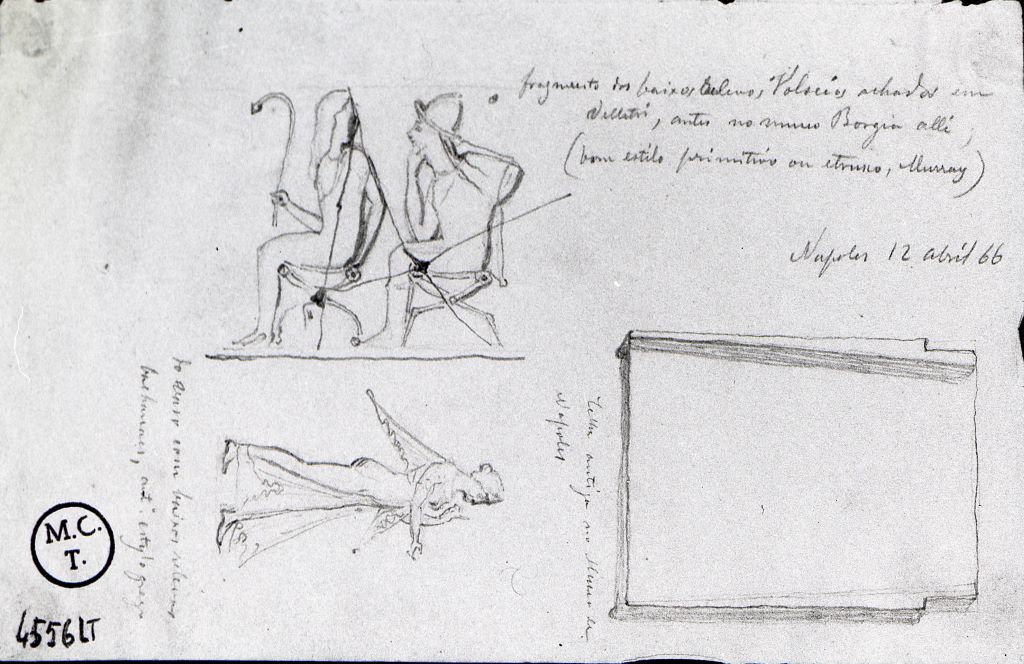 fragmento dos baixos relevos Volscios achados em
Velletri, antes no museu Borgia alli,
(bom estilo primitivo ou etrusco, Murray)
Napoles 12 abril 66
Telha antiga no Museu de
Napoles
do vaso com baixos relevos
bachanaes, ant. estylo grego
M.C.
T.
4556LT